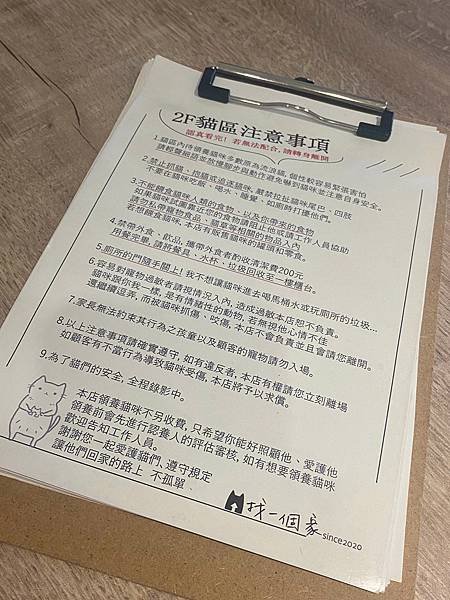 2F貓區注意事項
認真看完！若無法配合，請轉身離開
1.貓區內待領養貓咪多數原為流浪貓，個性較容易緊張害怕
請輕聲細語並放慢腳步與動作避免嚇到貓咪並注意自身安全。
2.禁止抓貓、挖貓或追逐貓咪，嚴禁拉扯貓咪尾巴、四肢
不要在貓咪吃飯、喝水、睡覺、如廁時打擾他們。
3.不能餵食貓咪人類的食物、以及你帶來的食物
如果貓咪試圖靠近您的食物請阻止他或請工作人員協助
請勿私帶寵物食品、貓草等相關的物品入內
若想餵食貓咪，本店有販售貓咪的罐頭和零食。
4.禁帶外食、飲品，攜帶外食者酌收清潔費200元
用餐完畢，請將餐具、水杯、垃圾回收至一樓櫃台。
5.廁所的門隨手關上！我不想讓貓咪進去喝馬桶水或玩廁所的垃圾...
6.容易對寵物過敏者請視情況入內，造成過敏本店恕不負責。
貓咪跟你我一樣，是有情緒性的動物，若無視他心情不佳
還繼續逗弄，而被貓咪抓傷、咬傷，本店不會負責並且會請您離開。
7.家長無法約束其行為之孩童以及顧客的寵物請勿入場。
8.以上注意事項請確實遵守，如有違反者，本店有權請您立刻離場
如顧客有不當行為導致貓咪受傷，本店將予以求償。
9.為了貓們的安全，全程錄影中。
本店領養貓咪不另收費，只希望你能好照顧他、愛護他
領養前會先進行認養人的評估審核，如有想要領養貓咪
歡迎告知工作人員。
謝謝您一起愛護貓們，遵守規定
讓他們回家的路上 不孤單
找一個家 since2020